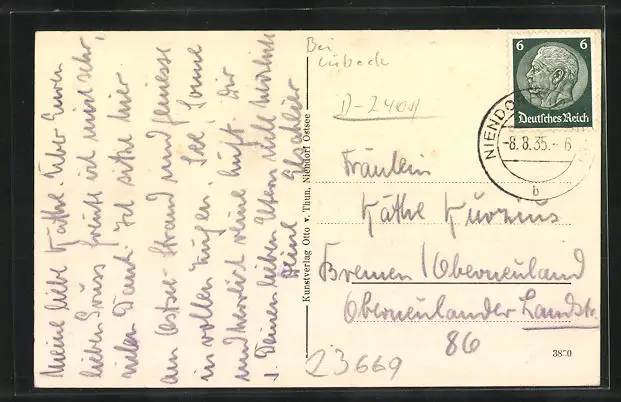 Meine liebe Käthe. Über Euren
lieben Gruss freute ich mich sehr,
vielen Dank. Ich sitze hier
am Ostsee-Strand und geniesse
in vollen Zügen. See, Sonne
und herrlich reine Luft. Dir
u. Deinen lieben Eltern viele herzliche
Deine
Kunstverlag Otto v. Thun, Niendorf Ostsee
Bei
Lübeck
D-2401
6 6
Deutsches Reich
NIENDO
-8.8.35.- 6
b
Fräulein
Käthe
Bremen / Oberneuland
Oberneulander Landstr.
86
23669
3850